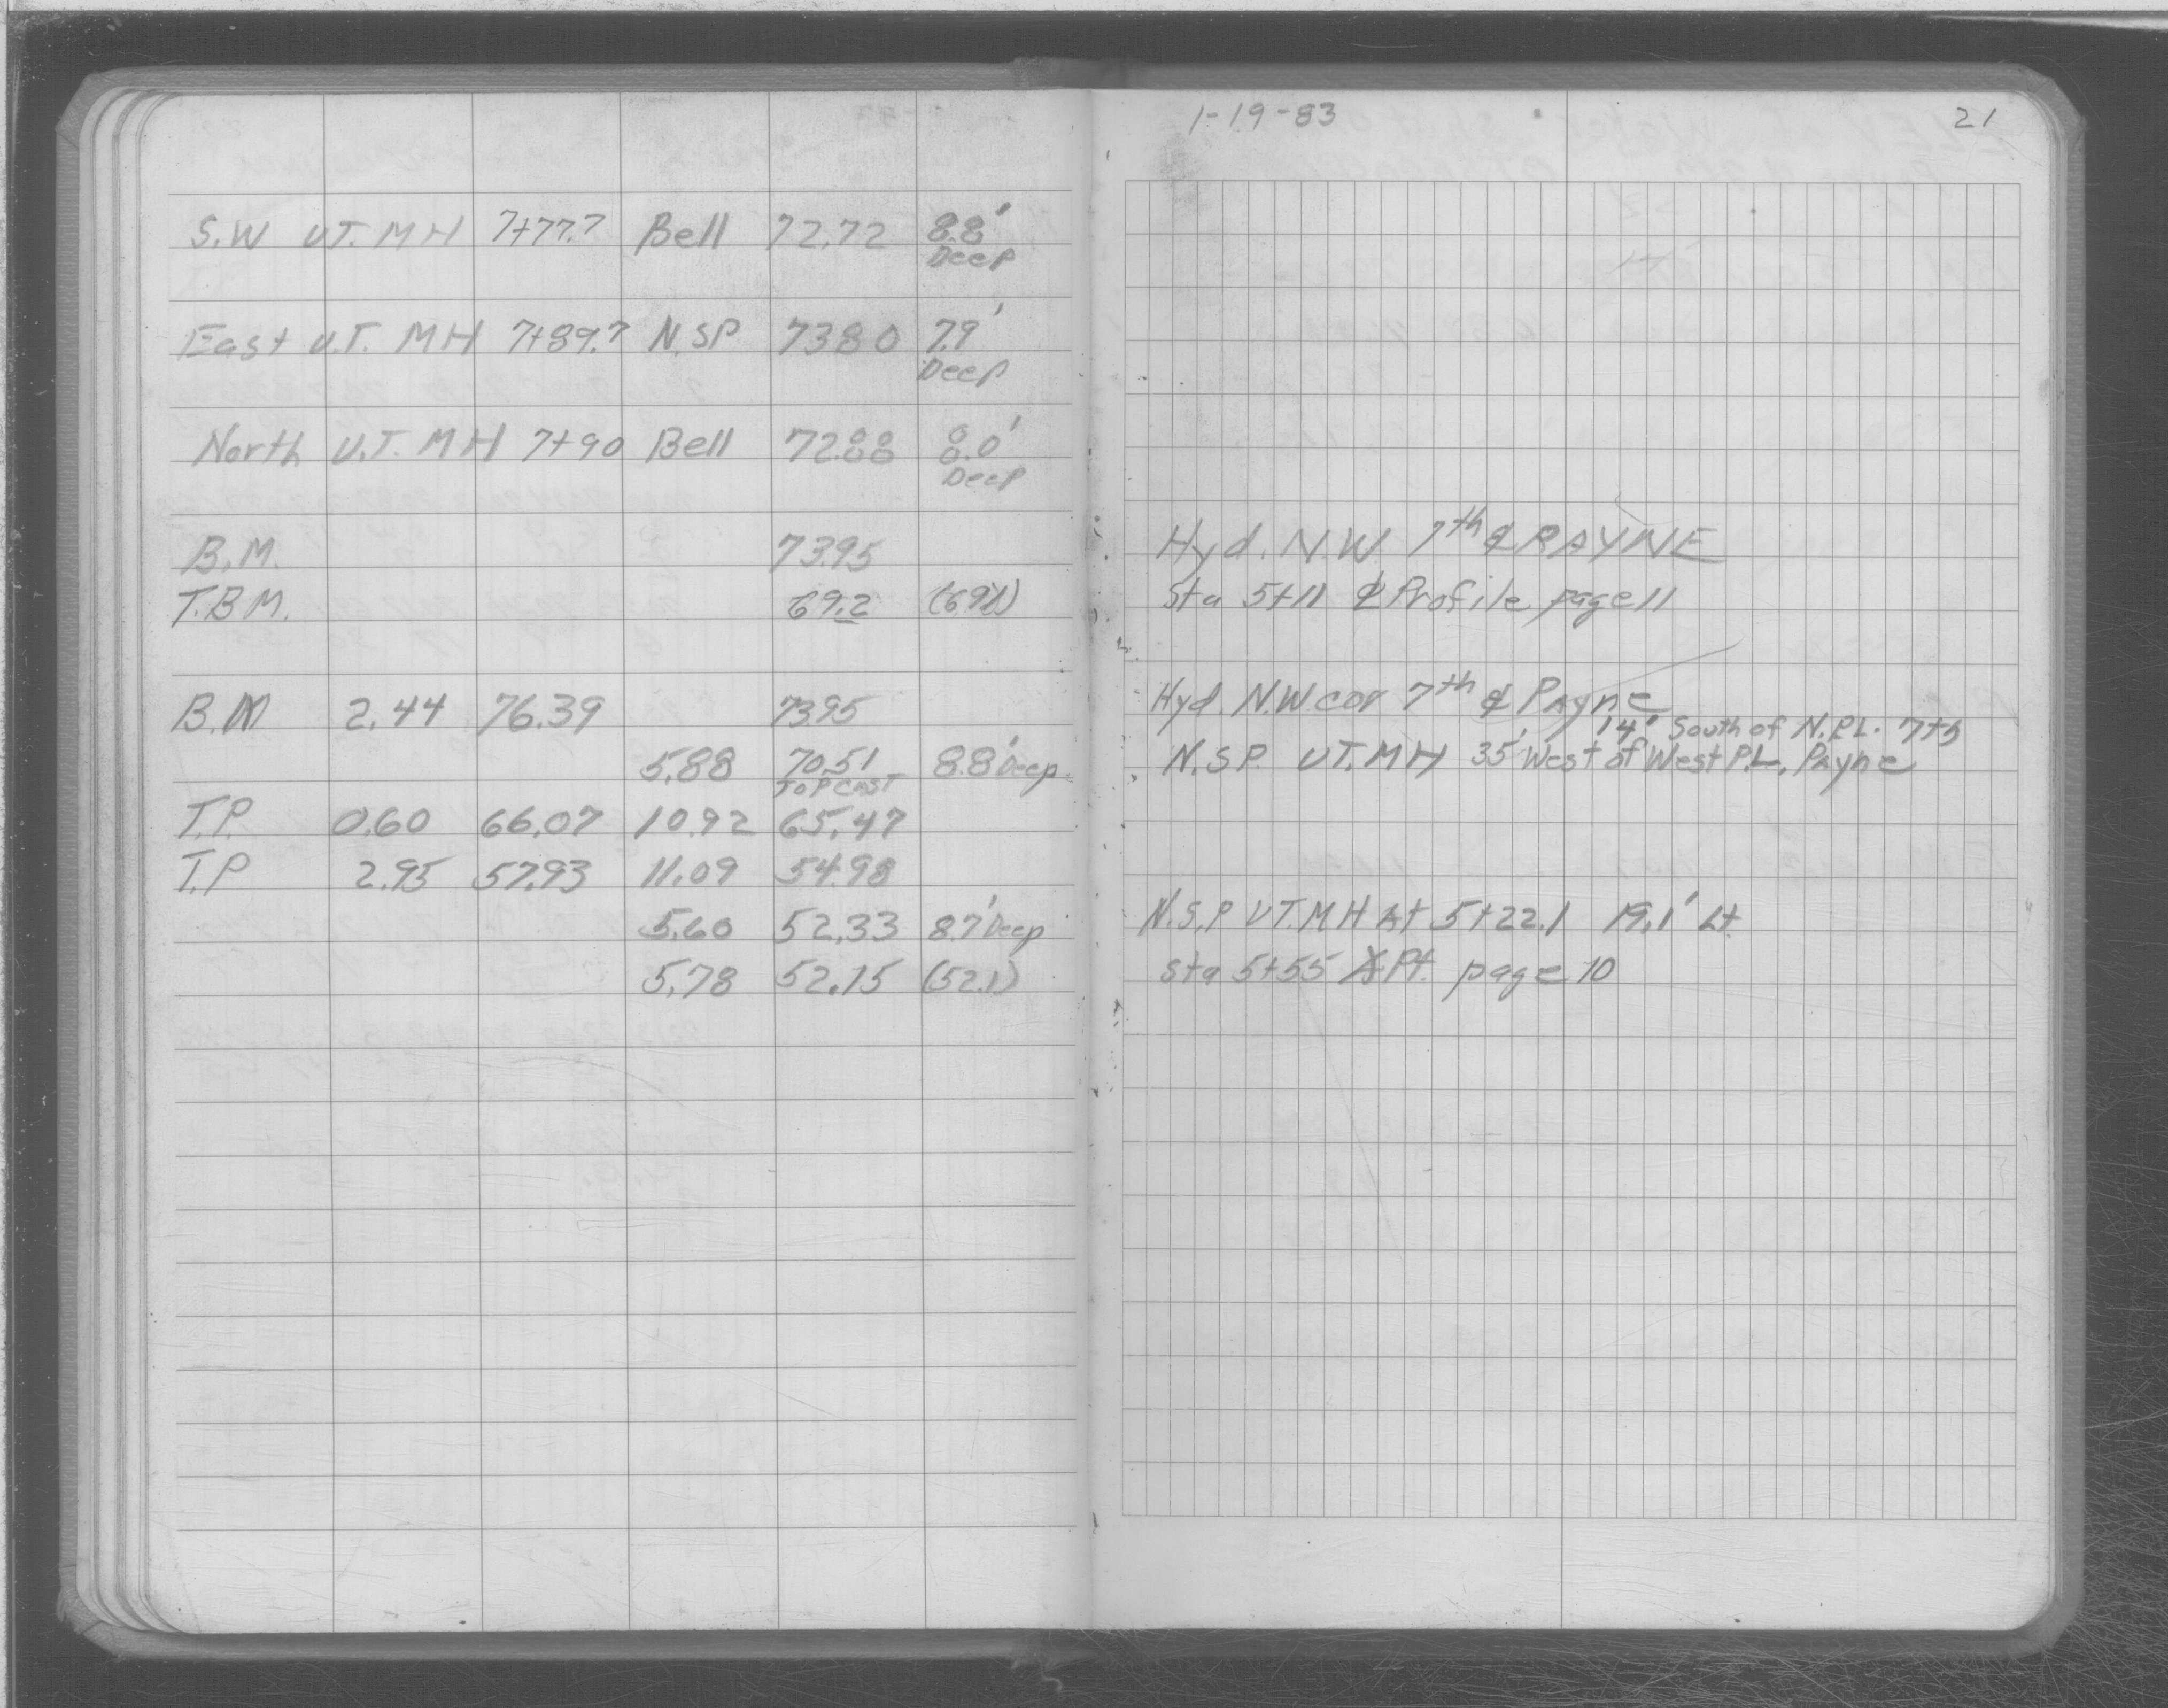 1-19-83 21
S.W UT. MH 7+77.7 Bell 72.72 8.8'
Deep
East U.T. MH 7+89.7 N.SP 73.80 7.9'
Deep
North U.T. MH 7+90 Bell 72.88 8.0'
Deep
B.M. 73.95 Hyd. N.W. 7th & PAYNE
T.B.M. 69.2 Sta 5+11 ₵ Profile page 11
B.M 2.44 76.39 73.95 Hyd. N.W cor 7th & Payne
14' South of N.P.L. 7th
5.88 70.51 8.8' Deep N.S.P. UT.MH 35' West of West P.L. Payne
TOP CAST
T.P. 0.60 66.07 10.92 65.47
T.P 2.95 57.93 11.09 54.98
5.60 52.33 8.7' Deep N.S.P UT.MH At 5+22.1 19.1' Lt
5.78 52.15 (52.1) Sta 5+55 Pt. page 10